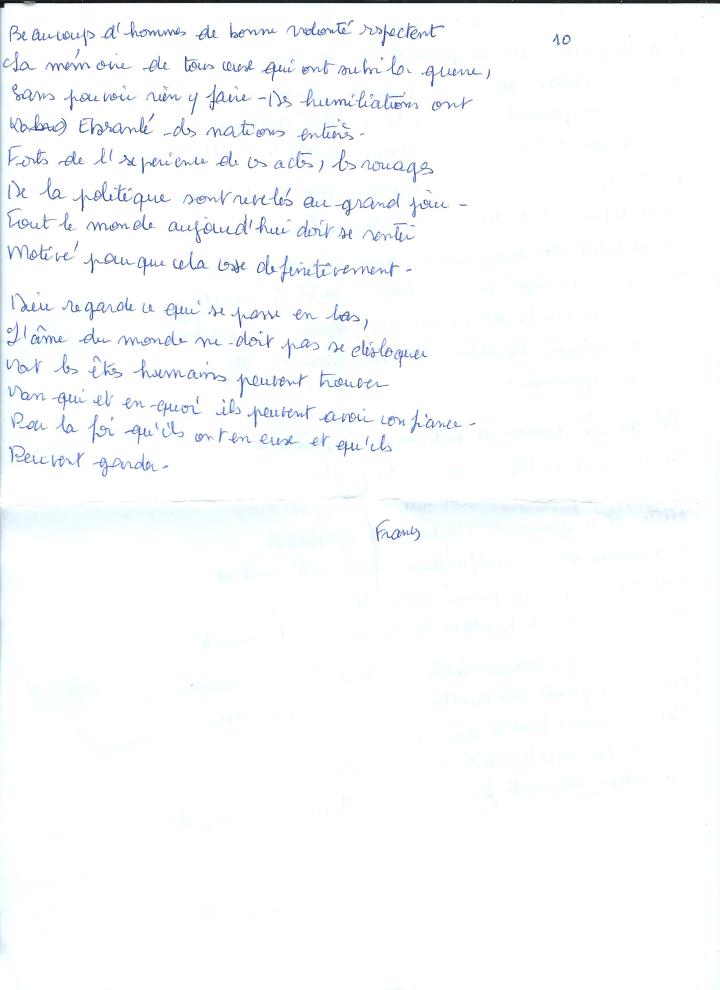 Beaucoup d'hommes de bonne volonté respectent
10
La mémoire de tous ceux qui ont subi la guerre,
Sans pouvoir rien y faire - Des humiliations ont
Ebranlé des nations entières -
Forts de l'expérience de ces actes, les rouages
De la politique sont revelés au grand jour -
Tout le monde aujourd'hui doit se sentir
Motivé pour que cela cesse definitivement -
Dieu regarde ce qui se passe en bas,
L'âme du monde ne doit pas se disloquer
les êtres humains peuvent trouver
qui et en quoi ils peuvent avoir confiance -
Pour la foi qu'ils ont en eux et qu'ils
Peuvent garder -
Francis